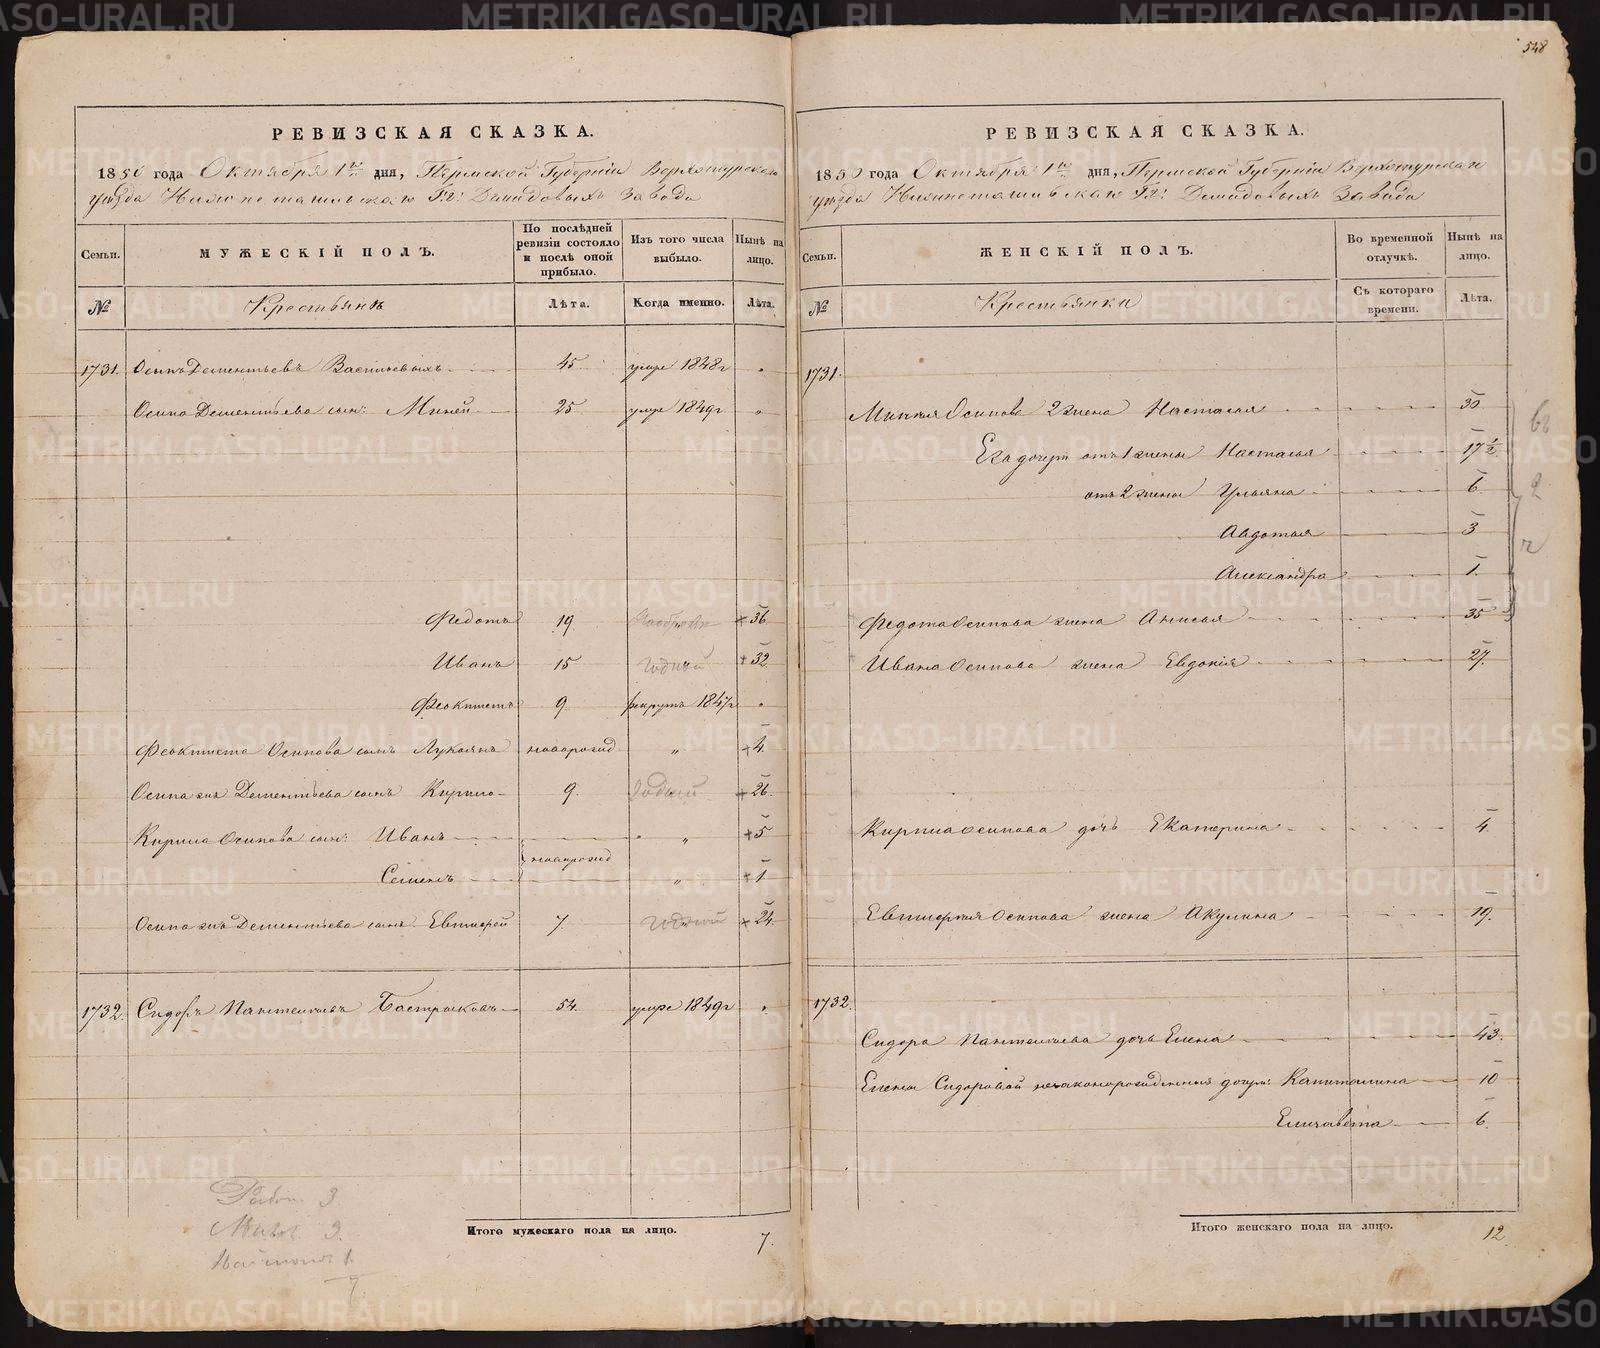 548
РЕВИЗСКАЯ СКАЗКА.
1850 года Октября 1го дня, Пермской Губернии Верхотурскаго
уѣзда Нижнетагильскаго Гг: Демидовыхъ Завода
Семьи.
МУЖЕСКІЙ ПОЛЪ.
По послѣдней ревизіи состояло и послѣ оной прибыло.
Изъ того числа выбыло.
Нынѣ на лицо.
№
Крестьянъ
Лѣта.
Когда именно.
Лѣта.
1731. Осипъ Дементьевъ Васильевыхъ 45 умре 1848г „
Осипа Дементьева сынъ: Миней 25 умре 1849г „
Федотъ 19 +36
Иванъ 15 годный +32
Феоктистъ 9. рекрутъ 1847г „
Феоктиста Осипова сынъ Лукоянъ новорожд „ +4.
Осипа жъ Дементьева сынъ Кирило 9. годный +26.
Кирила Осипова сын: Иванъ „ +5
новорожд
Семенъ „ +1
Осипа жъ Дементьева сынъ Евтифей 7. годный +24.
1732. Сидоръ Пантелѣевъ Бастрыковъ 54. умре 1849г „
Работ. 3
Малол. 3.
1.
7
Итого мужескаго пола на лицо. 7.
РЕВИЗСКАЯ СКАЗКА.
1850 года Октября 1го дня, Пермской Губерніи Верхотурскаго
уѣзда Нижнетагильскаго Гг: Демидовыхъ Завода
Семьи.
ЖЕНСКІЙ ПОЛЪ.
Во временной отлучкѣ.
Нынѣ на лицо.
№
Крестьянки
Съ котораго времени.
Лѣта.
1731.
Минея Осипова 2 жена Настасья 30
Его дочери отъ 1 жены Настасья 17½
отъ 2 жены Ульяна 6
Авдотья 3
Александра 1.
Федота Осипова жена Анисья 35
Ивана Осипова жена Евдокія 27.
Кирила Осипова дочь Екатерина 4
Евтифея Осипова жена Акулина 19.
1732.
Сидора Пантелѣева дочь Елена 43.
Елены Сидоровой незаконорожденныя дочери: Капиталина 10
Елизавета 6.
Итого женскаго пола на лицо. 12
METRIKI.GASO-URAL.RU